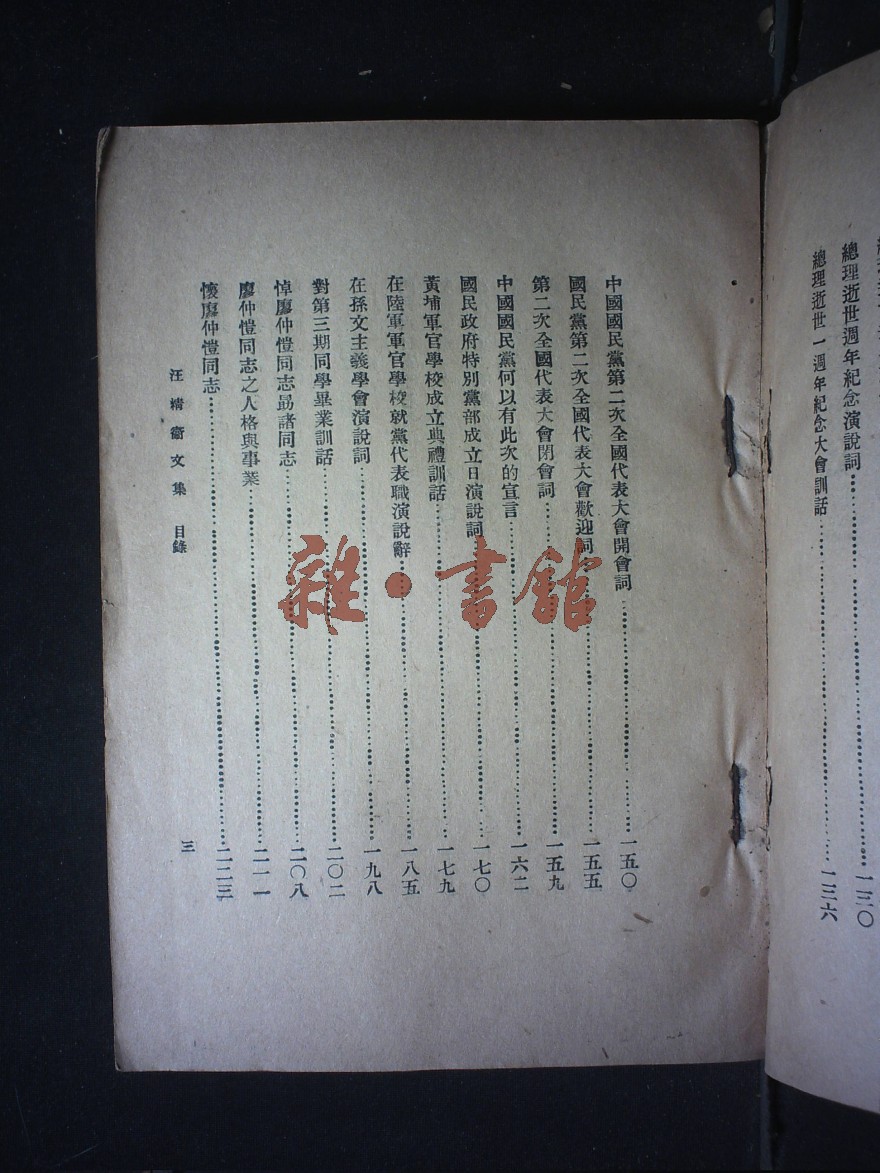 總理逝世週年紀念演說詞……一三〇
總理逝世一週年紀念大會訓話……一三六
中國國民黨第二次全國代表大會開會詞……一五〇
國民黨第二次全國代表大會歡迎詞……一五五
第二次全國代表大會閉會詞……一五九
中國國民黨何以有此次的宣言……一六二
國民政府特別黨部成立日演說詞……一七〇
黃埔軍官學校成立典禮訓話……一七九
在陸軍軍官學校就黨代表職演說辭……一八五
在孫文主義學會演說詞……一九八
對第三期同學畢業訓話……二〇二
悼廖仲愷同志勗諸同志……二〇八
廖仲愷同志之人格與事業……二一一
懷廖仲愷同志……二二三
汪精衛文集 目錄
三
雜·書館